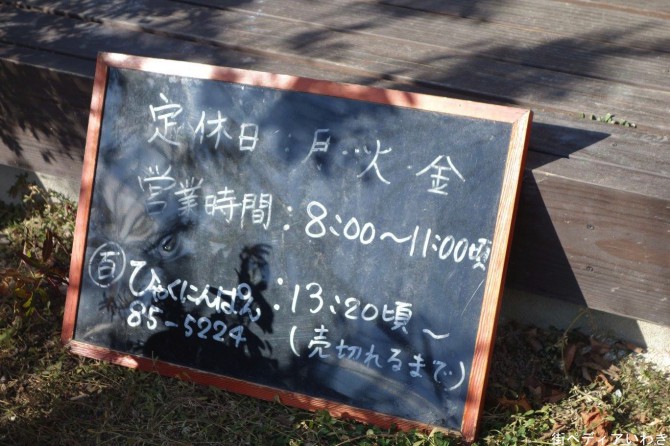 定休日：月・火・金
営業時間：8:00〜11:00頃
百 ひゃくにんぱん：13:20頃〜
85-5224 (売切れるまで)
街ペディアいわき